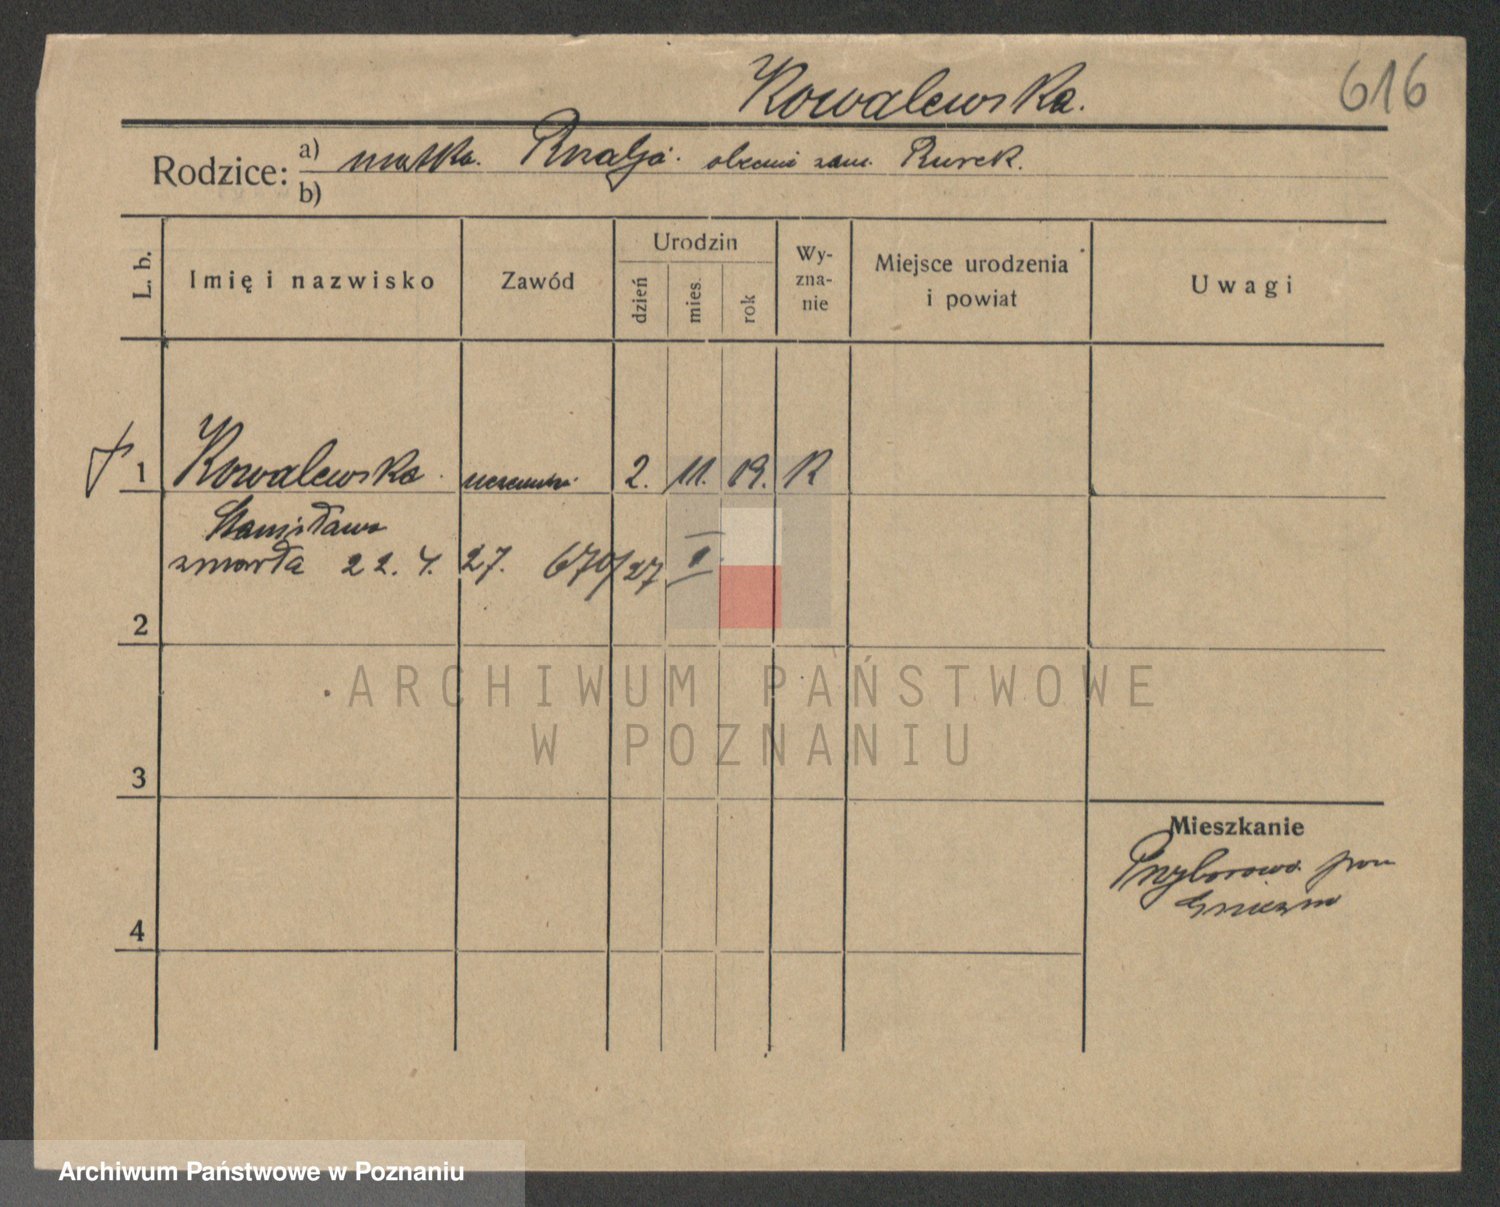 Kowalewska.
616
Rodzice: a) matka. Rozalja. obecnie zam. Rurek.
b)
L. b.
Imię i nazwisko
Zawód
Urodzin
dzień
mies.
rok
Wy-
zna-
nie
Miejsce urodzenia
i powiat
Uwagi
1 Kowalewska uczennica. 2. 11. 19. R
Stanisława
zmarła 22. 4. 27. 670/27 I
2
ARCHIWUM PAŃSTWOWE
W POZNANIU
3
Mieszkanie
Przyborowo pow
Gniezno
4
Archiwum Państwowe w Poznaniu